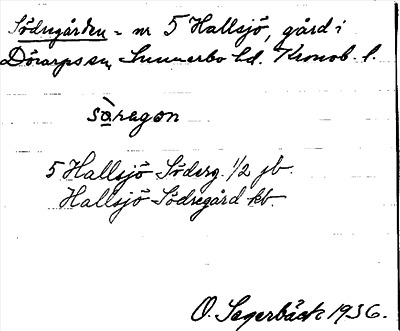 Södregården = nr 5 Hallsjö, gård i
Dörarps sn, Sunnerbo hd. Kronob. l.
sö̀ragon
5 Hallsjö Söderg. 1/2 jb.
Hallsjö Södregård kb.
O. Sagerbäck 1936.